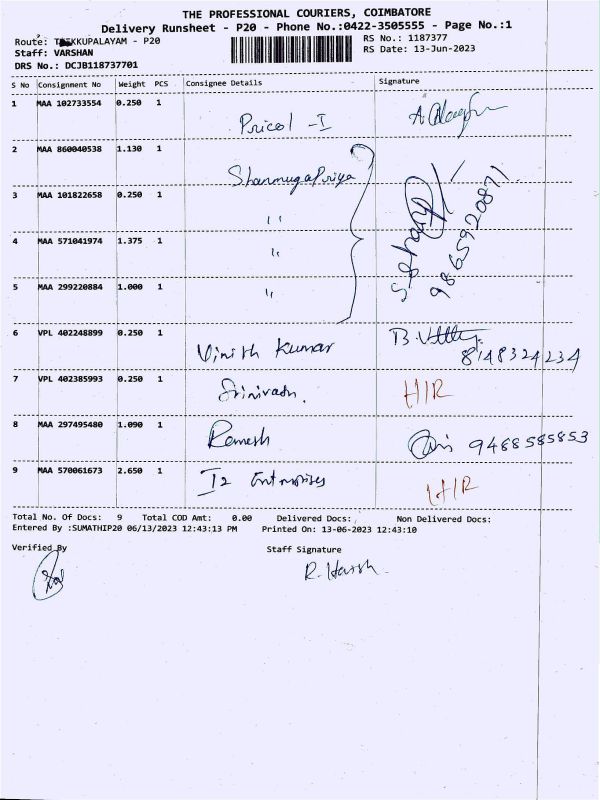 THE PROFESSIONAL COURIERS, COIMBATORE
Delivery Runsheet - P20 - Phone No.:0422-3505555 - Page No.:1
Route: KKUPALAYAM - P20
RS No.: 1187377
Staff: VARSHAN
RS Date: 13-Jun-2023
DRS No.: DCJB118737701
S No Consignment No Weight PCS Consignee Details Signature
1 MAA 102733554 0.250 1 Pricol - I
2 MAA 860040538 1.130 1 ShanmugaPriya
3 MAA 101822658 0.250 1 "
4 MAA 571041974 1.375 1 "
5 MAA 299220884 1.000 1 "
9865920871
6 VPL 402248899 0.250 1 Vinith Kumar
8148324234
7 VPL 402385993 0.250 1 Srinivash. H/R
8 MAA 297495480 1.090 1 Ramesh 9488585853
9 MAA 570061673 2.650 1 I2 Enterprises H/R
Total No. Of Docs: 9 Total COD Amt: 0.00 Delivered Docs: Non Delivered Docs:
Entered By :SUMATHIP20 06/13/2023 12:43:13 PM Printed On: 13-06-2023 12:43:10
Verified By Staff Signature
R. Harsh.